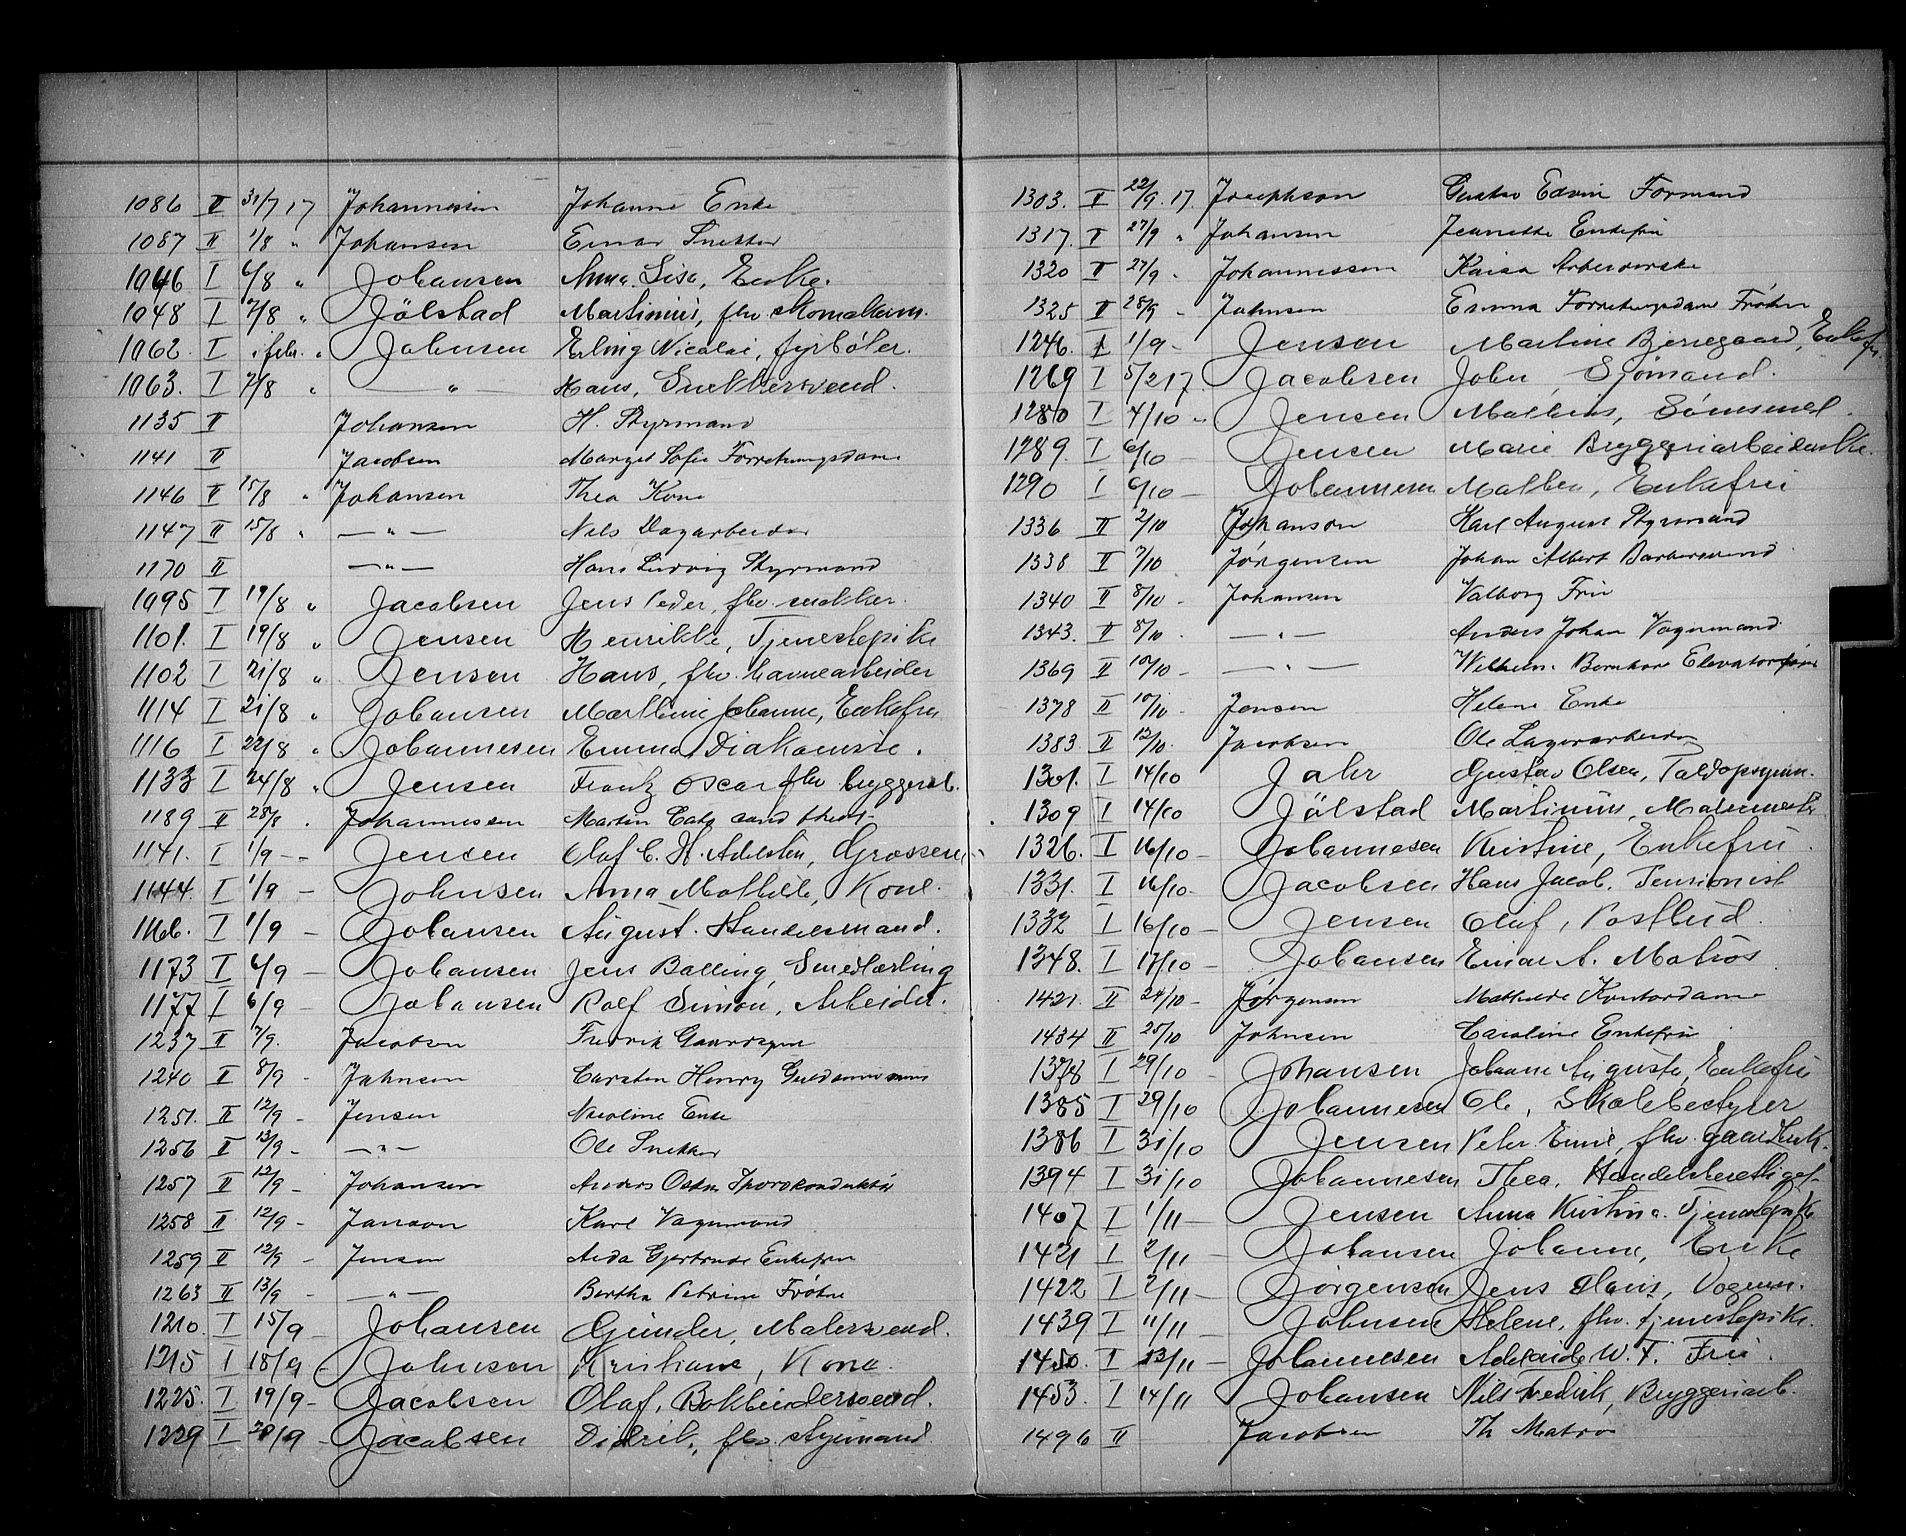 1086 II 31/7 17 Johannessen Johanne Enke
1087 II 1/8 " Johansen Einar Snekker
1046 I 6/8 " Johansen Anna Lisa, Enke.
1048 I 7/8 " Jölstad Martinius, fhv.
1062 I i febr. " Johnsen Erling Nicolai, fyrböter.
1063. I 7/8 " — " — Hans, Snekkersvend.
1135 II Johansen H. Styrmand
1141 II Jacobsen Margit Sofie Forretningsdame
1146 II 15/8 " Johansen Thea Kone
1147 II 15/8 " — " — Nils Dagarbeider
1170 II — " — Hans Ludvig Styrmand
1095 I 19/8 " Jacobsen Jens Peder, fhv. snekker.
1101. I 19/8 " Jensen Henrikke, Tjenestepike
1102 I 21/8 " Jensen Hans, fhv. havnearbeider
1114 I 21/8 " Johansen Marthine Johanne, Enkefru
1116 I 22/8 " Johannesen Emma Diakonisse.
1133 I 24/8 " Jensen Frantz Oscar fhv. bryggeriarb.
1189 II 28/8 . Johannessen Martin cand theol
1141. I 1/9 - Jensen Olaf C. H. Adelsten, Grosserer
1144. I 1/9 — Johnsen Anna Mathilde, Kone.
1166. I 1/9 — Johansen August. Handelsmand.
1173 I 6/9 — Johansen Jens Balling, Smedlærling
1177 I 6/9 — Johansen Rolf Simon, Arbeider.
1237 II 7/9. Jacobsen Fredrik Gaardsgut
1240 II 8/9 - Johnsen Carsten Henry
1251. II 12/9 - Jensen Nicoline Enke
1256 II 13/9 - — " — Ole Snekker
1257 II 12/9 - Johansen Anders Oskar Sporvkonduktør
1258 II 12/9 - Janson Karl Vognmand
1259 II 12/9 - Jensen Aida Gjertrude Enkefru
1263 II 13/9 - — " — Bertha Petrine Frøken
1210. I 15/9 - Johansen Gunder, Malersvend.
1215 I 18/9 - Johnsen Kristiane, Kone.
1225. I 19/9 - Jacobsen Olaf, Bokbindersvend.
1229 I 20/9 - Jacobsen Didrik, fhv. styrmand.
1303. II 22/9. 17. Josephson Gustav Edvin Formand
1317. II 27/9 " Johansen Jeanette Enkefru
1320 II 27/9 - Johannessen Kaisa Arbeiderske
1325 II 28/9 - Johnsen Emma Forretningsdame Frøken
1246. I 1/9 - Jensen Martine Bjerregaard, Enkefr.
1269 I 5/2 17. Jacobsen John, Sjømand.
1280 I 4/10 - Jensen Mathias,
1289. I 6/10 - Jensen Marie Bryggeriarbeiderske.
1290 I 6/10 - Johannesen Mathea, Enkefru
1336 II 2/10 Johanson Karl August Styrmand
1338 II 7/10 Jørgensen Johan Albert Barbersvend
1340 II 8/10 - Johansen Valborg Fru
1343. II 8/10. — " — Anders Johan Vognmand
1369 II 10/10 - — " — Wilhelm Bernhard
1378 II 10/10. Jensen Helene Enke
1383 II 12/10. Jacobsen Ole Lagerarbeider
1301. I 14/10 Jahr Gustav Olsen,
1309 I 14/10 Jölstad Martinius, Malermester
1326. I 16/10 - Johannesen Kristine, Enkefru.
1331. I 16/10 - Jacobsen Hans Jacob. Pensionist
1332 I 16/10 - Jensen Olaf, Postbud
1348. I 17/10 - Johansen Einar A. Matros
1421. II 24/10 - Jørgensen Mathilde Kontordame
1434 II 25/10 Johnsen Caroline Enkefru
1378 I 29/10 - Johansen Johanne Auguste, Enkefru
1385 I 29/10 Johannesen Ole, Skolebestyrer
1386 I 31/10 Jensen Peter Emil, fhv. gaardbruk.
1394 I 31/10 Johannesen Thea, Handelsberettiget
1407 I 1/11 - Jensen Anna Kristina. Tjenestepike
1421 I 2/11 - Johansen Johanne, Enke
1422 I 2/11 - Jørgensen Jens Hans, Vognm.
1439 I 11/11 - Johnsen Helene, fhv. tjenestepike.
1450. I 13/11 - Johannesen W. F. Fru.
1453. I 14/11 Johansen Nils Fredrik, Bryggeriarb.
1496 II Jacobsen Th Matros